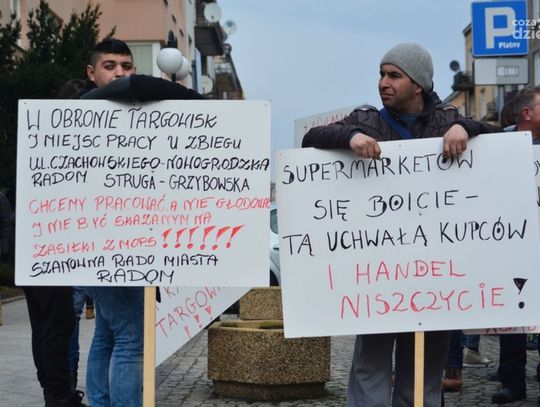 W OBRONIE TARGOWISK
I MIEJSC PRACY U ZBIEGU
UL.CZACHOWSKIEGO-NOWOGRODZKA
RADOM STRUGA-GRZYBOWSKA
CHCEMY PRACOWAĆ A NIE GŁODOWAĆ
I NIE BYĆ SKAZANYM NA
ZASIŁKI Z MOPS!!!!!!
SZANOWNA RADO MIASTA
RADOM
SUPERMARKETÓW
SIĘ BOICIE-
TĄ UCHWAŁĄ KUPCÓW
I HANDEL
NISZCZYCIE!
P
Płatny
coza
dzień